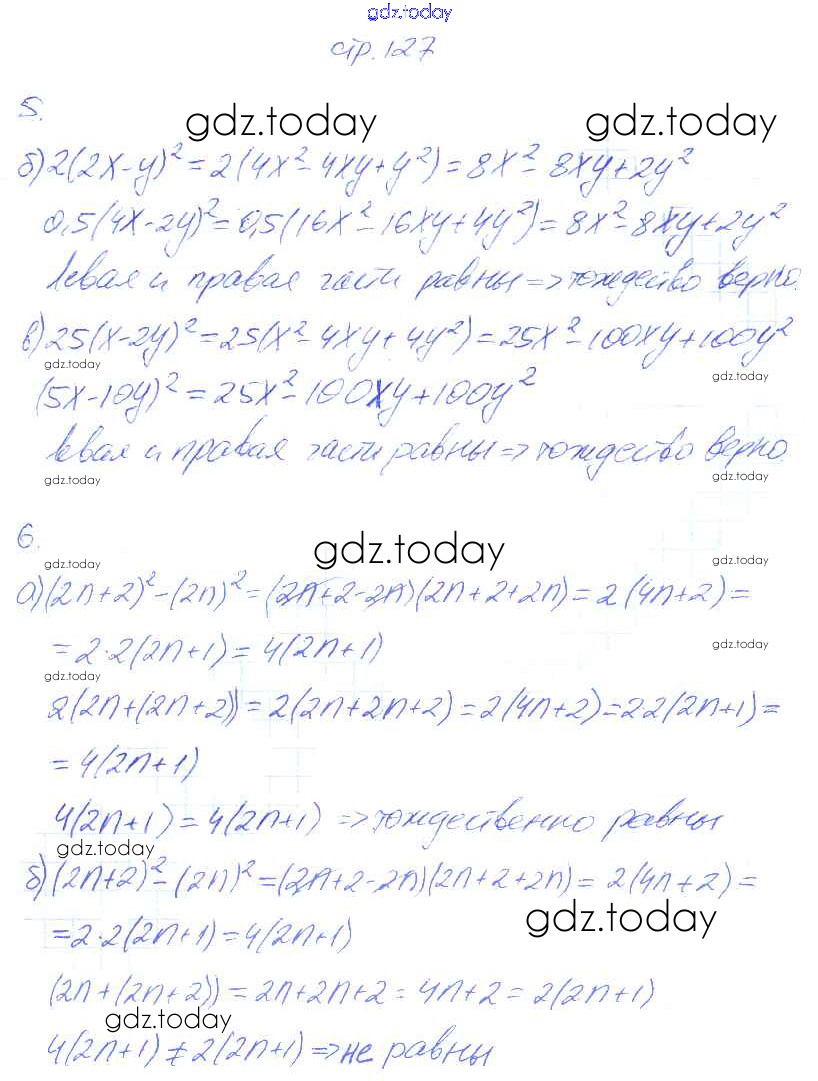 gdz.today
стр. 127
5.
gdz.today gdz.today
б) 2(2x-y)² = 2(4x² - 4xy + y²) = 8x² - 8xy + 2y²
0,5(4x-2y)² = 0,5(16x² - 16xy + 4y²) = 8x² - 8xy + 2y²
левая и правая части равны => тождество верно.
в) 25(x-2y)² = 25(x² - 4xy + 4y²) = 25x² - 100xy + 100y²
gdz.today gdz.today
(5x-10y)² = 25x² - 100xy + 100y²
левая и правая части равны => тождество верно.
gdz.today gdz.today
6.
gdz.today
gdz.today gdz.today
а) (2n+2)² - (2n)² = (2n+2-2n)(2n+2+2n) = 2(4n+2) =
= 2·2(2n+1) = 4(2n+1)
gdz.today
gdz.today
2(2n+(2n+2)) = 2(2n+2n+2) = 2(4n+2) = 2·2(2n+1) =
= 4(2n+1)
4(2n+1) = 4(2n+1) => тождественно равны
gdz.today
б) (2n+2)² - (2n)² = (2n+2-2n)(2n+2+2n) = 2(4n+2) =
gdz.today
= 2·2(2n+1) = 4(2n+1)
(2n+(2n+2)) = 2n+2n+2 = 4n+2 = 2(2n+1)
gdz.today
4(2n+1) ≠ 2(2n+1) => не равны